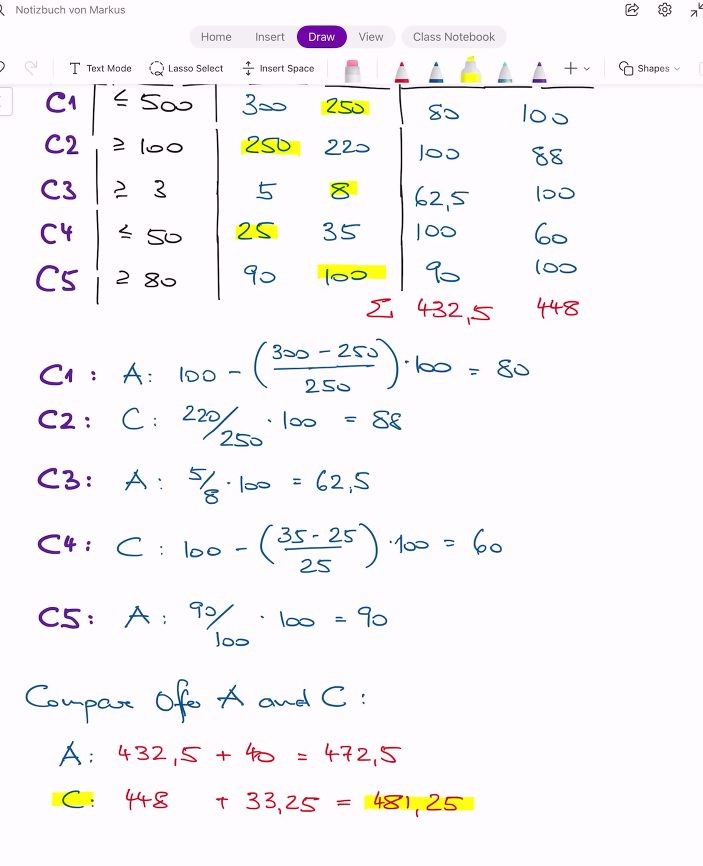 Notizbuch von Markus
Home Insert Draw View Class Notebook
Text Mode Lasso Select Insert Space Shapes
C1 ≤ 500 300 250 80 100
C2 ≥ 100 250 220 100 88
C3 ≥ 3 5 8 62,5 100
C4 ≤ 50 25 35 100 60
C5 ≥ 80 90 100 90 100
Σ 432,5 448
C1: A: 100 - (300 - 250 / 250) · 100 = 80
C2: C: 220/250 · 100 = 88
C3: A: 5/8 · 100 = 62,5
C4: C: 100 - (35 - 25 / 25) · 100 = 60
C5: A: 90/100 · 100 = 90
Compare Offer A and C:
A: 432,5 + 40 = 472,5
C: 448 + 33,25 = 481,25